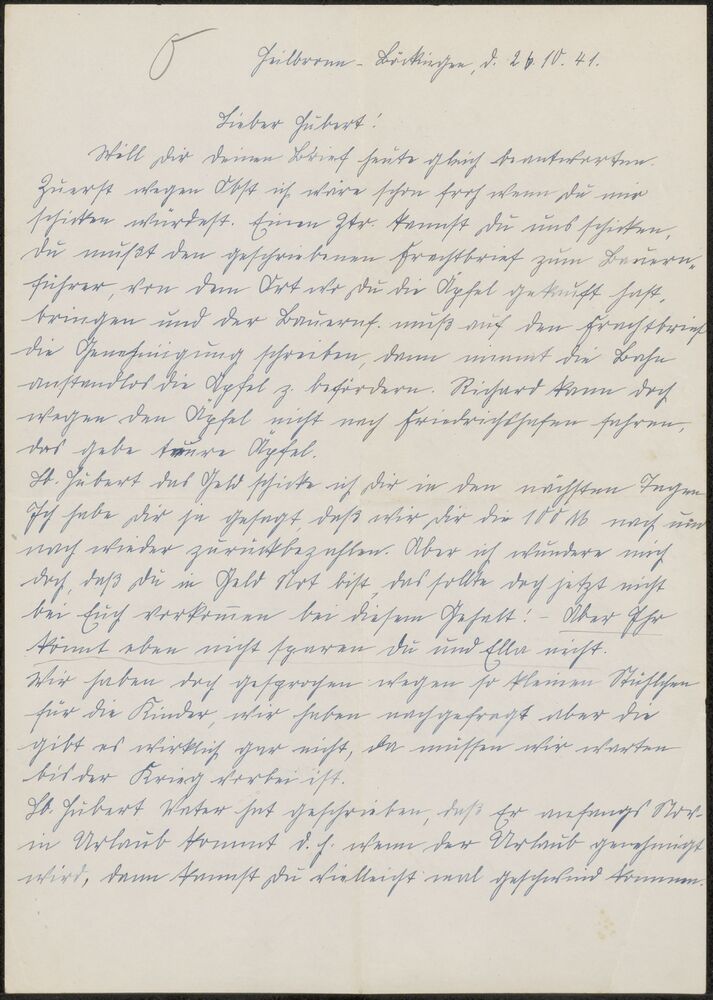 Heilbronn-Böckingen, d. 26.10.41.
Lieber Hubert!
Will Dir Deinen Brief heute gleich beantworten.
Zuerst wegen Obst ich wäre schon froh wenn Du mir
schicken würdest. Einen Ztr. kannst Du uns schicken,
Du mußt den geschriebenen Frachtbrief zum Bauern-
führer, von dem Ort wo Du die Äpfel gekauft hast,
bringen und der Bauernf. muß auf den Frachtbrief
die Genehmigung schreiben, dann nimmt die Bahn
anstandlos die Äpfel z. befördern. Richard kann doch
wegen den Äpfel nicht nach Friedrichshafen fahren,
das gebe teure Äpfel.
Lb. Hubert das Geld schicke ich Dir in den nächsten Tagen
Ich habe Dir ja gesagt, daß wir Dir die 100 M nach und
nach wieder zurückbezahlen. Aber ich wundere mich
doch, daß Du in Geld Not bist, das sollte doch jetzt nicht
bei Euch vorkommen bei diesem Gehalt! - Aber Ihr
könnt eben nicht sparen Du und Ella nicht.
Wir haben doch gesprochen wegen so kleinen Stühlchen
für die Kinder, wir haben nachgefragt aber die
gibt es wirklich gar nicht, da müssen wir warten
bis der Krieg vorbei ist.
Lb. Hubert Vater hat geschrieben, daß Er anfangs Nov.
in Urlaub kommt d.h. wenn der Urlaub genehmigt
wird, dann kannst Du vielleicht mal geschwind kommen.